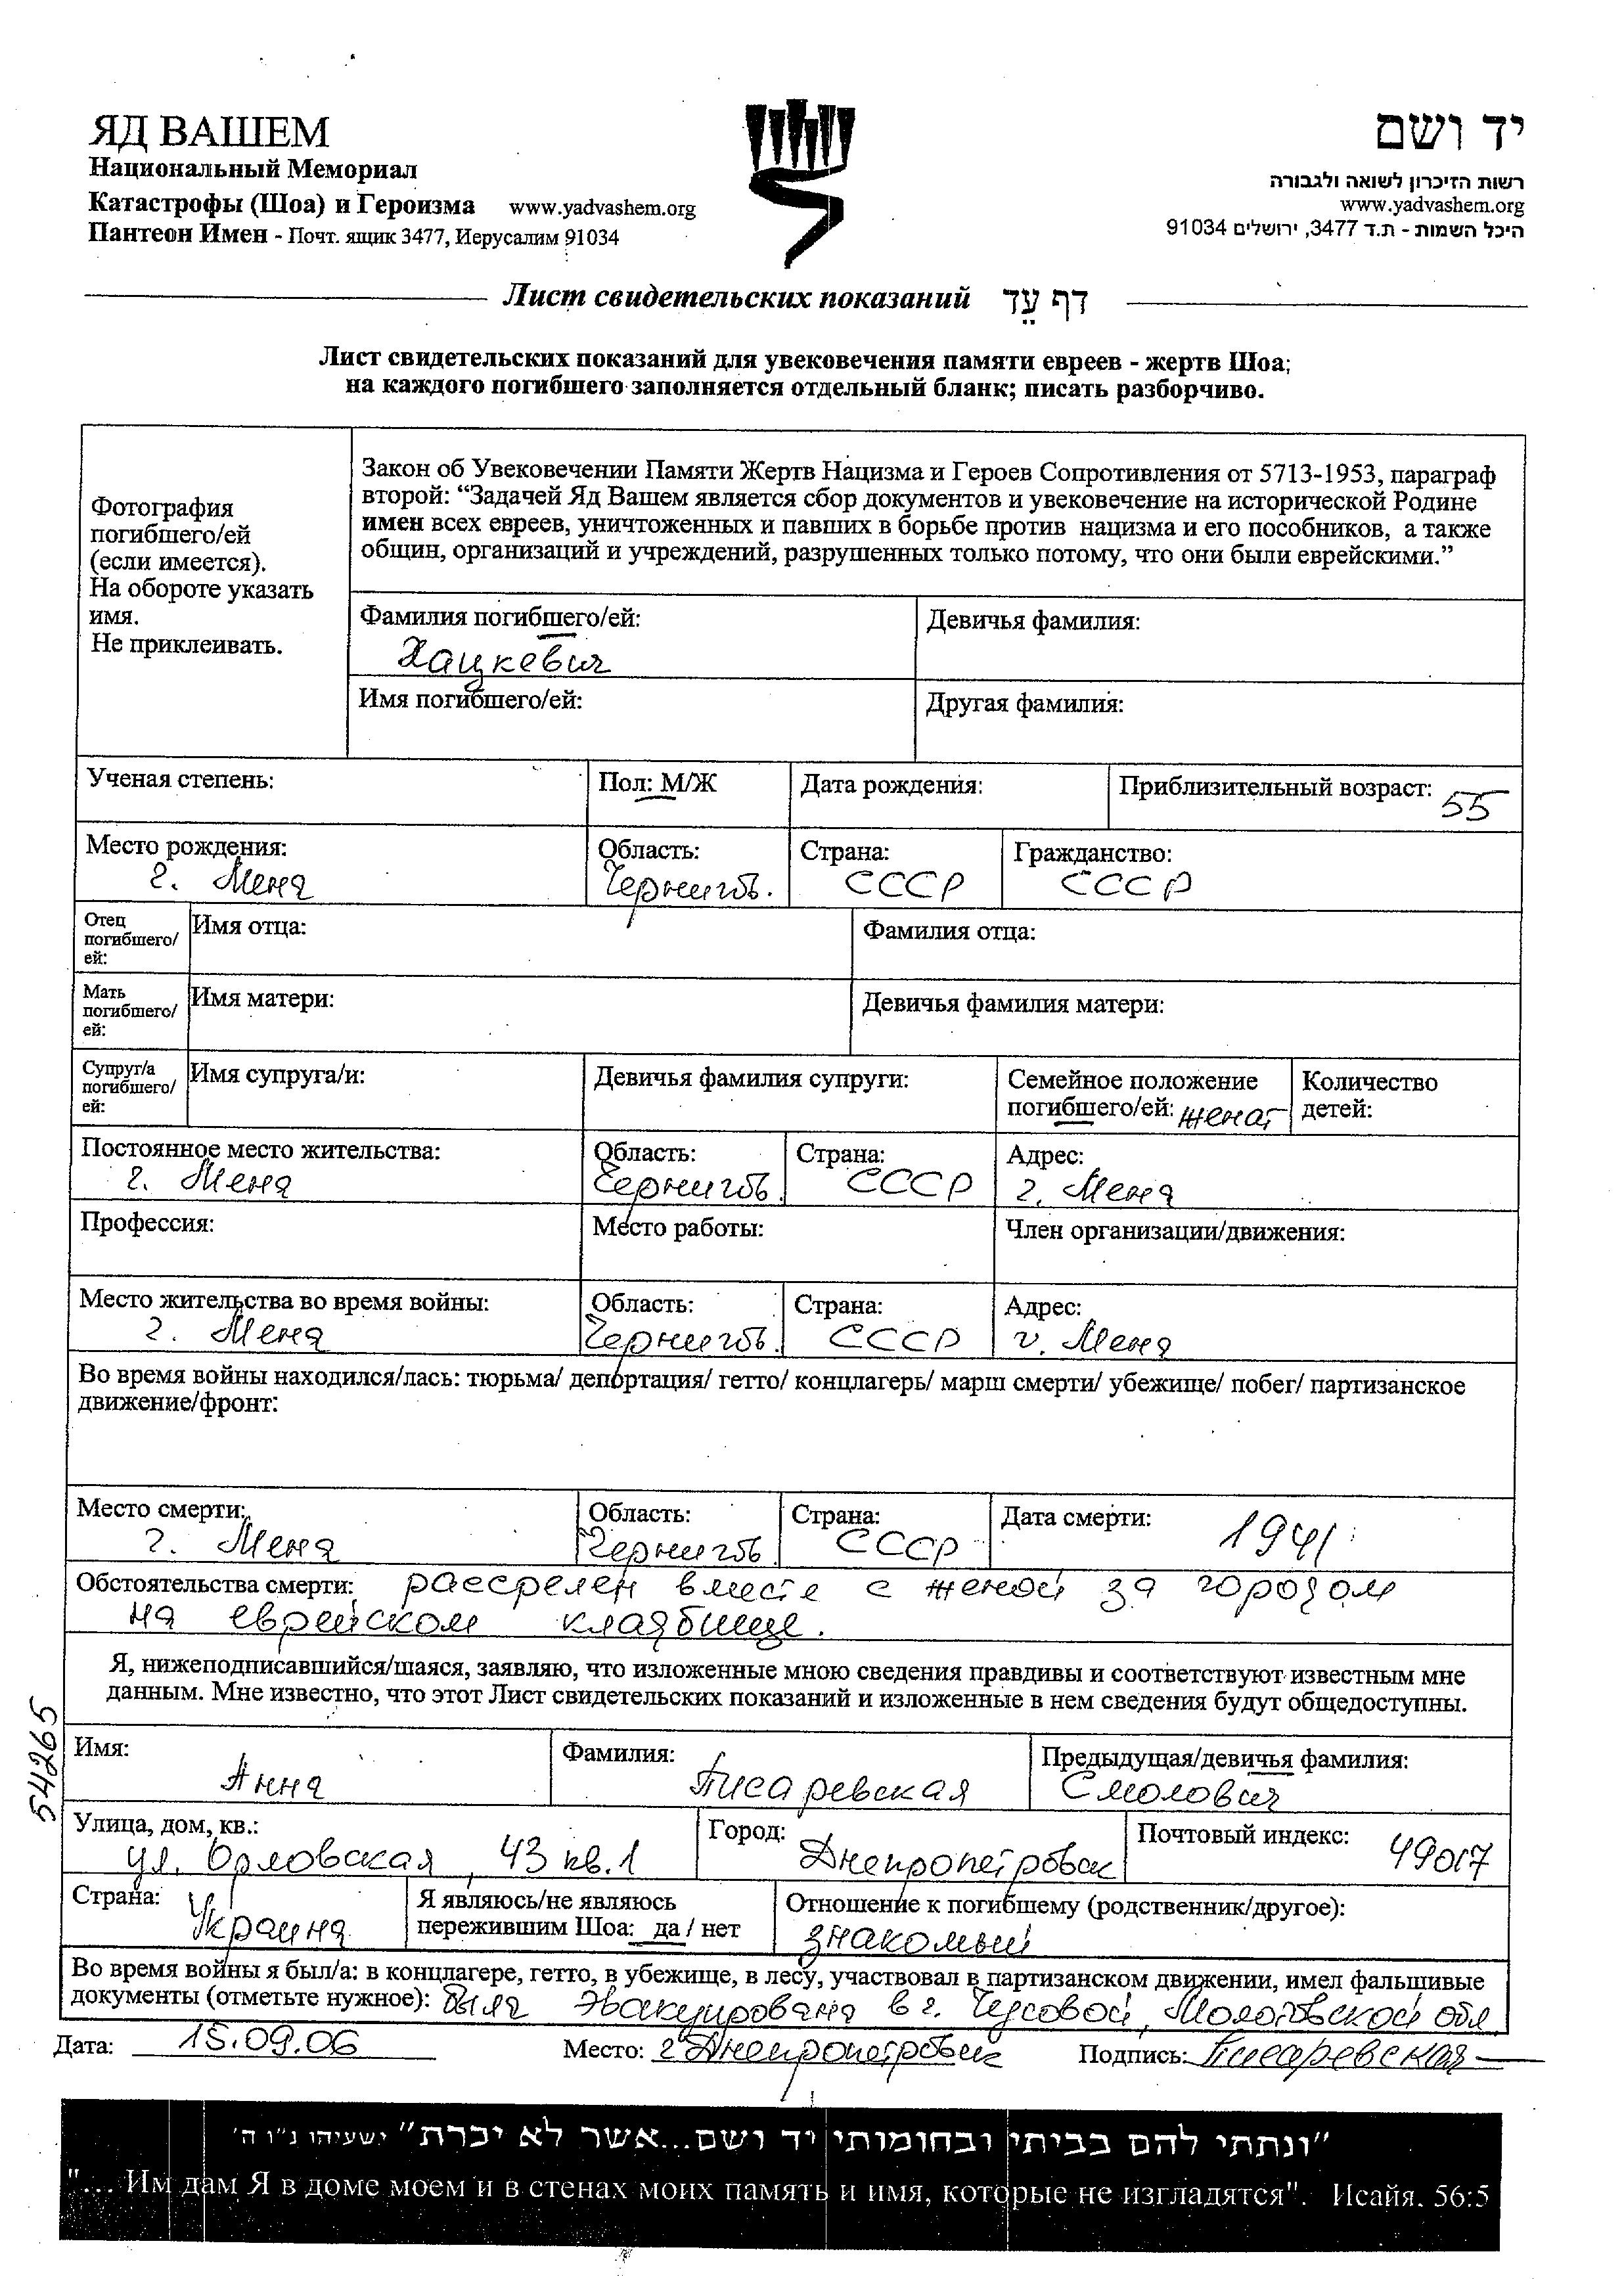 ЯД ВАШЕМ
Национальный Мемориал
Катастрофы (Шоа) и Героизма www.yadvashem.org
Пантеон Имен - Почт. ящик 3477, Иерусалим 91034
יד ושם
רשות הזיכרון לשואה ולגבורה
www.yadvashem.org
היכל השמות - ת.ד 3477, ירושלים 91034
Лист свидетельских показаний דף עֵד
Лист свидетельских показаний для увековечения памяти евреев - жертв Шоа;
на каждого погибшего заполняется отдельный бланк; писать разборчиво.
Фотография
погибшего/ей
(если имеется).
На обороте указать
имя.
Не приклеивать.
Закон об Увековечении Памяти Жертв Нацизма и Героев Сопротивления от 5713-1953, параграф
второй: “Задачей Яд Вашем является сбор документов и увековечение на исторической Родине
имен всех евреев, уничтоженных и павших в борьбе против нацизма и его пособников, а также
общин, организаций и учреждений, разрушенных только потому, что они были еврейскими.”
Фамилия погибшего/ей: Девичья фамилия:
Хацкевич
Имя погибшего/ей: Другая фамилия:
Ученая степень: Пол: М/Ж Дата рождения: Приблизительный возраст: 55
Место рождения: Область: Страна: Гражданство:
г. Мена Черниговс. СССР СССР
Отец
погибшего/
ей:
Имя отца: Фамилия отца:
Мать
погибшего/
ей:
Имя матери: Девичья фамилия матери:
Супруг/а
погибшего/
ей:
Имя супруга/и: Девичья фамилия супруги: Семейное положение
погибшего/ей: женат
Количество
детей:
Постоянное место жительства: Область: Страна: Адрес:
г. Мена Черниговс. СССР г. Мена
Профессия: Место работы: Член организации/движения:
Место жительства во время войны: Область: Страна: Адрес:
г. Мена Черниговс. СССР г. Мена
Во время войны находился/лась: тюрьма/ депортация/ гетто/ концлагерь/ марш смерти/ убежище/ побег/ партизанское
движение/фронт:
Место смерти: Область: Страна: Дата смерти:
г. Мена Черниговс. СССР 1941
Обстоятельства смерти: рассрелен вместе с женой за городом
на еврейском кладбище.
Я, нижеподписавшийся/шаяся, заявляю, что изложенные мною сведения правдивы и соответствуют известным мне
данным. Мне известно, что этот Лист свидетельских показаний и изложенные в нем сведения будут общедоступны.
54265
Имя: Фамилия: Предыдущая/девичья фамилия:
Анна Писаревская Смолович
Улица, дом, кв.: Город: Почтовый индекс:
ул. Орловская, 43 кв.1 Днепропетровск 49017
Страна: Украина
Я являюсь/не являюсь
пережившим Шоа: да / нет
Отношение к погибшему (родственник/другое):
знакомый
Во время войны я был/а: в концлагере, гетто, в убежище, в лесу, участвовал в партизанском движении, имел фальшивые
документы (отметьте нужное): была эвакуирована в г. Чусовой, Молотовской обл.
Дата: 15.09.06 Место: г Днепропетровск Подпись: Писаревская
"ונתתי להם בביתי ובחומותי יד ושם...אשר לא יכרת" ישעיהו נ"ו ה'
"... Им дам Я в доме моем и в стенах моих память и имя, которые не изгладятся". Исайя. 56:5